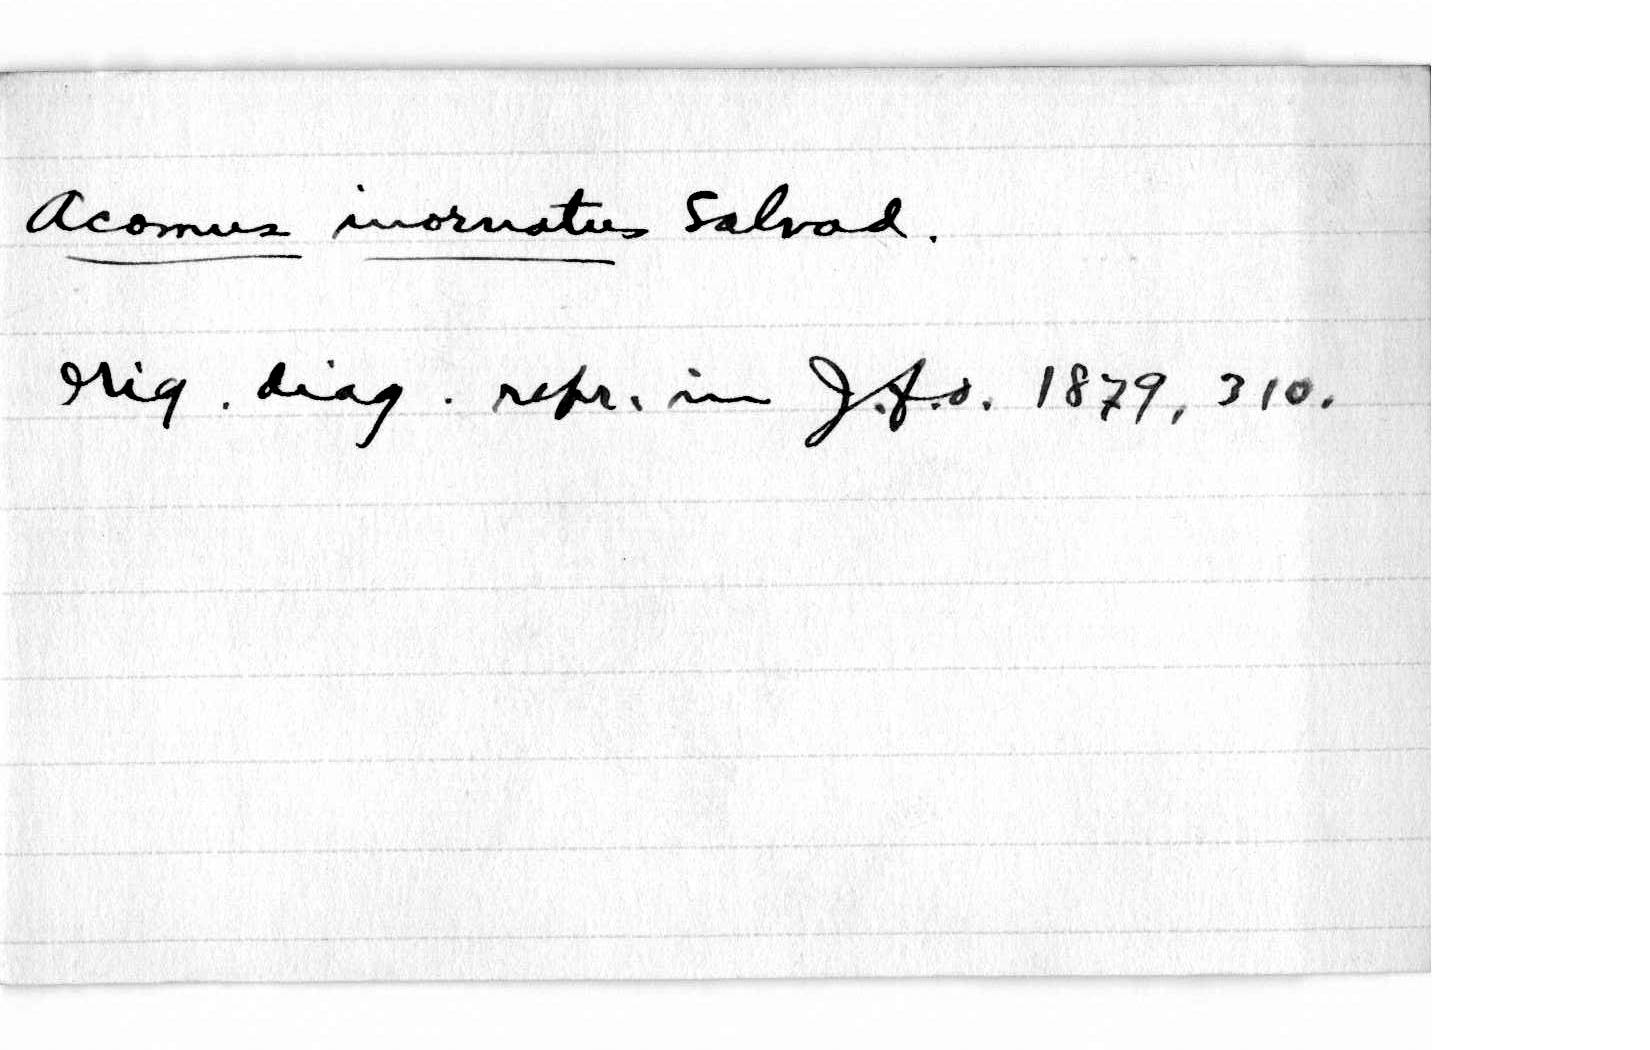 Acomus inornatus Salvad.
Orig. diag. repr. in J.f.O. 1879, 310.